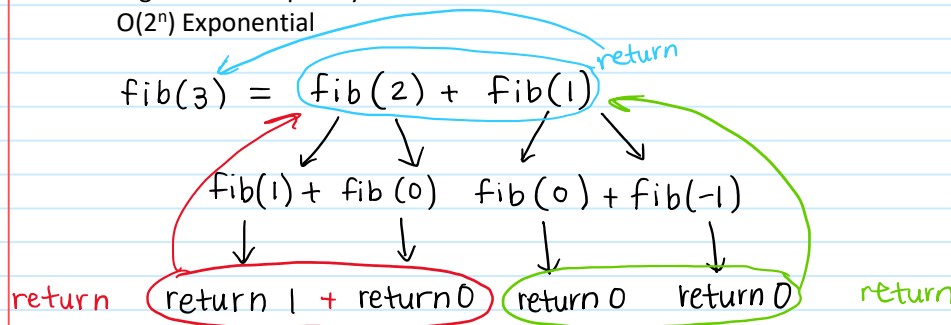 O(2ⁿ) Exponential
return
fib(3) = fib(2) + fib(1)
fib(1) + fib(0) fib(0) + fib(-1)
return return 1 + return 0 return 0 return 0 return